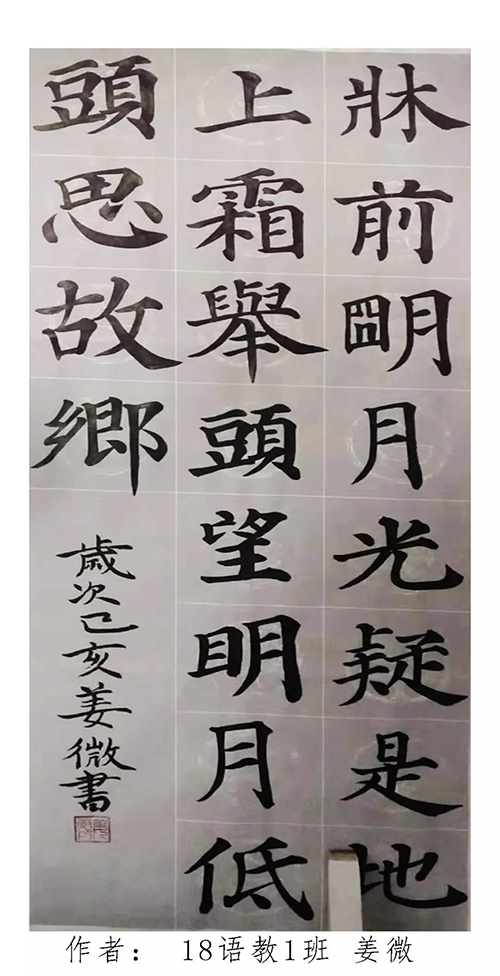 牀前朙月光疑是地
上霜舉頭望明月低
頭思故鄉
歲次己亥姜微書
作者： 18语教1班 姜微